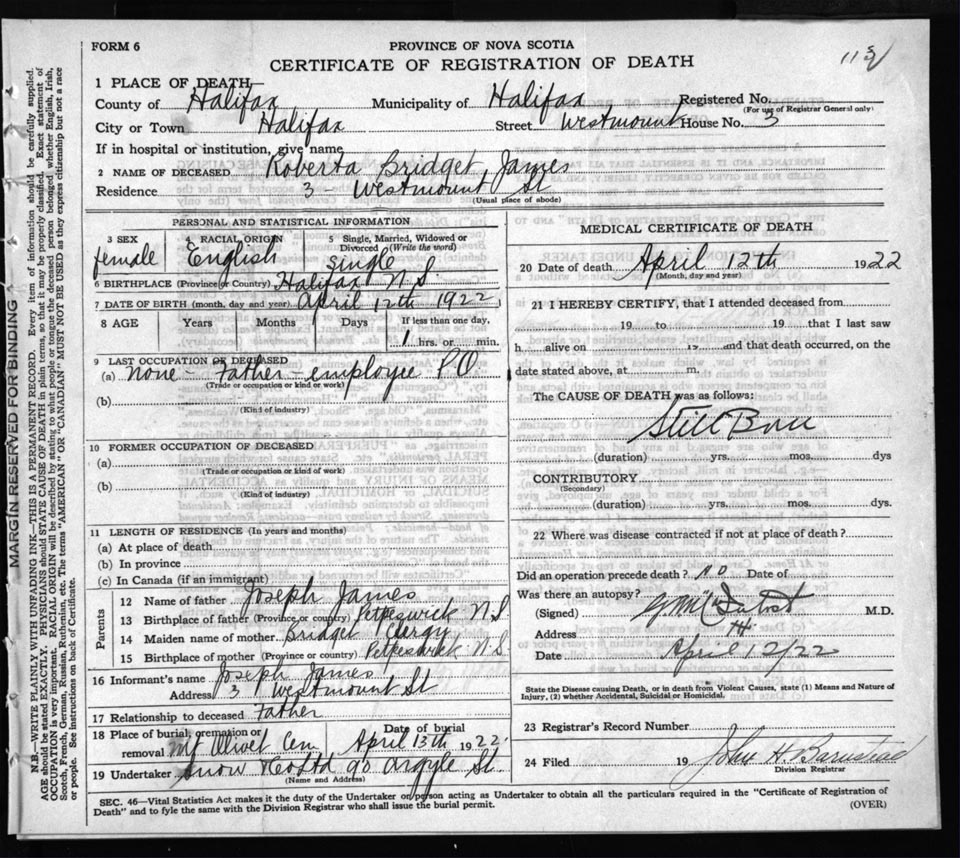 FORM 6
PROVINCE OF NOVA SCOTIA
CERTIFICATE OF REGISTRATION OF DEATH
1 PLACE OF DEATH—
County of Halifax Municipality of Halifax Registered No.
(For use of Registrar General only)
City or Town Halifax Street Westmount House No. 3
If in hospital or institution, give name
2 NAME OF DECEASED Roberta Bridget James
Residence 3 - Westmount St
(Usual place of abode)
PERSONAL AND STATISTICAL INFORMATION
3 SEX 4 RACIAL ORIGIN 5 Single, Married, Widowed or Divorced (Write the word)
female English Single
6 BIRTHPLACE (Province or Country) Halifax N.S.
7 DATE OF BIRTH (month, day and year) April 12th 1922
8 AGE Years Months Days If less than one day,
1 hrs. or min.
9 LAST OCCUPATION OF DECEASED
(a) None - Father - employee P.O.
(Trade or occupation or kind of work)
(b)
(Kind of industry)
10 FORMER OCCUPATION OF DECEASED
(a)
(Trade or occupation or kind of work)
(b)
(Kind of industry)
11 LENGTH OF RESIDENCE (In years and months)
(a) At place of death
(b) In province
(c) In Canada (if an immigrant)
Parents
12 Name of father Joseph James
13 Birthplace of father (Province or country) Petpeswick N S
14 Maiden name of mother Bridget Clergy
15 Birthplace of mother (Province or country) Petpeswick N S.
16 Informant's name Joseph James
Address 3 Westmount St
17 Relationship to deceased Father
18 Place of burial, cremation or removal Mt Olivet Cem Date of burial April 13th 1922
19 Undertaker Snow & Co Ltd 90 Argyle St.
(Name and Address)
MEDICAL CERTIFICATE OF DEATH
20 Date of death April 12th 1922
(Month, day and year)
21 I HEREBY CERTIFY, that I attended deceased from
19 to 19 that I last saw
h alive on 19 and that death occurred, on the
date stated above, at m.
The CAUSE OF DEATH was as follows:
Still Born
(duration) yrs. mos. dys
CONTRIBUTORY
(Secondary)
(duration) yrs. mos. dys.
22 Where was disease contracted if not at place of death?
Did an operation precede death? No Date of
Was there an autopsy?
(Signed) M.D.
Address
Date April 12/22
State the Disease causing Death, or in death from Violent Causes, state (1) Means and Nature of Injury, (2) whether Accidental, Suicidal or Homicidal.
23 Registrar's Record Number
24 Filed 19 John H Barnstead
Division Registrar
SEC. 46—Vital Statistics Act makes it the duty of the Undertaker or person acting as Undertaker to obtain all the particulars required in the "Certificate of Registration of
Death" and to fyle the same with the Division Registrar who shall issue the burial permit.
(OVER)
MARGIN RESERVED FOR BINDING
N.B.—WRITE PLAINLY WITH UNFADING INK—THIS IS A PERMANENT RECORD. Every item of information should be carefully supplied.
AGE should be stated EXACTLY. PHYSICIANS should STATE CAUSE OF DEATH in plain terms, so that it may be properly classified. Exact statement of
OCCUPATION is very important. RACIAL ORIGIN will be described by stating to what people or tongue the deceased person belonged whether English, Irish,
Scotch, French, German, Russian, Ruthenian, etc. The terms "AMERICAN" OR "CANADIAN" MUST NOT BE USED as they express citizenship but not a race
or people. See instructions on back of Certificate.